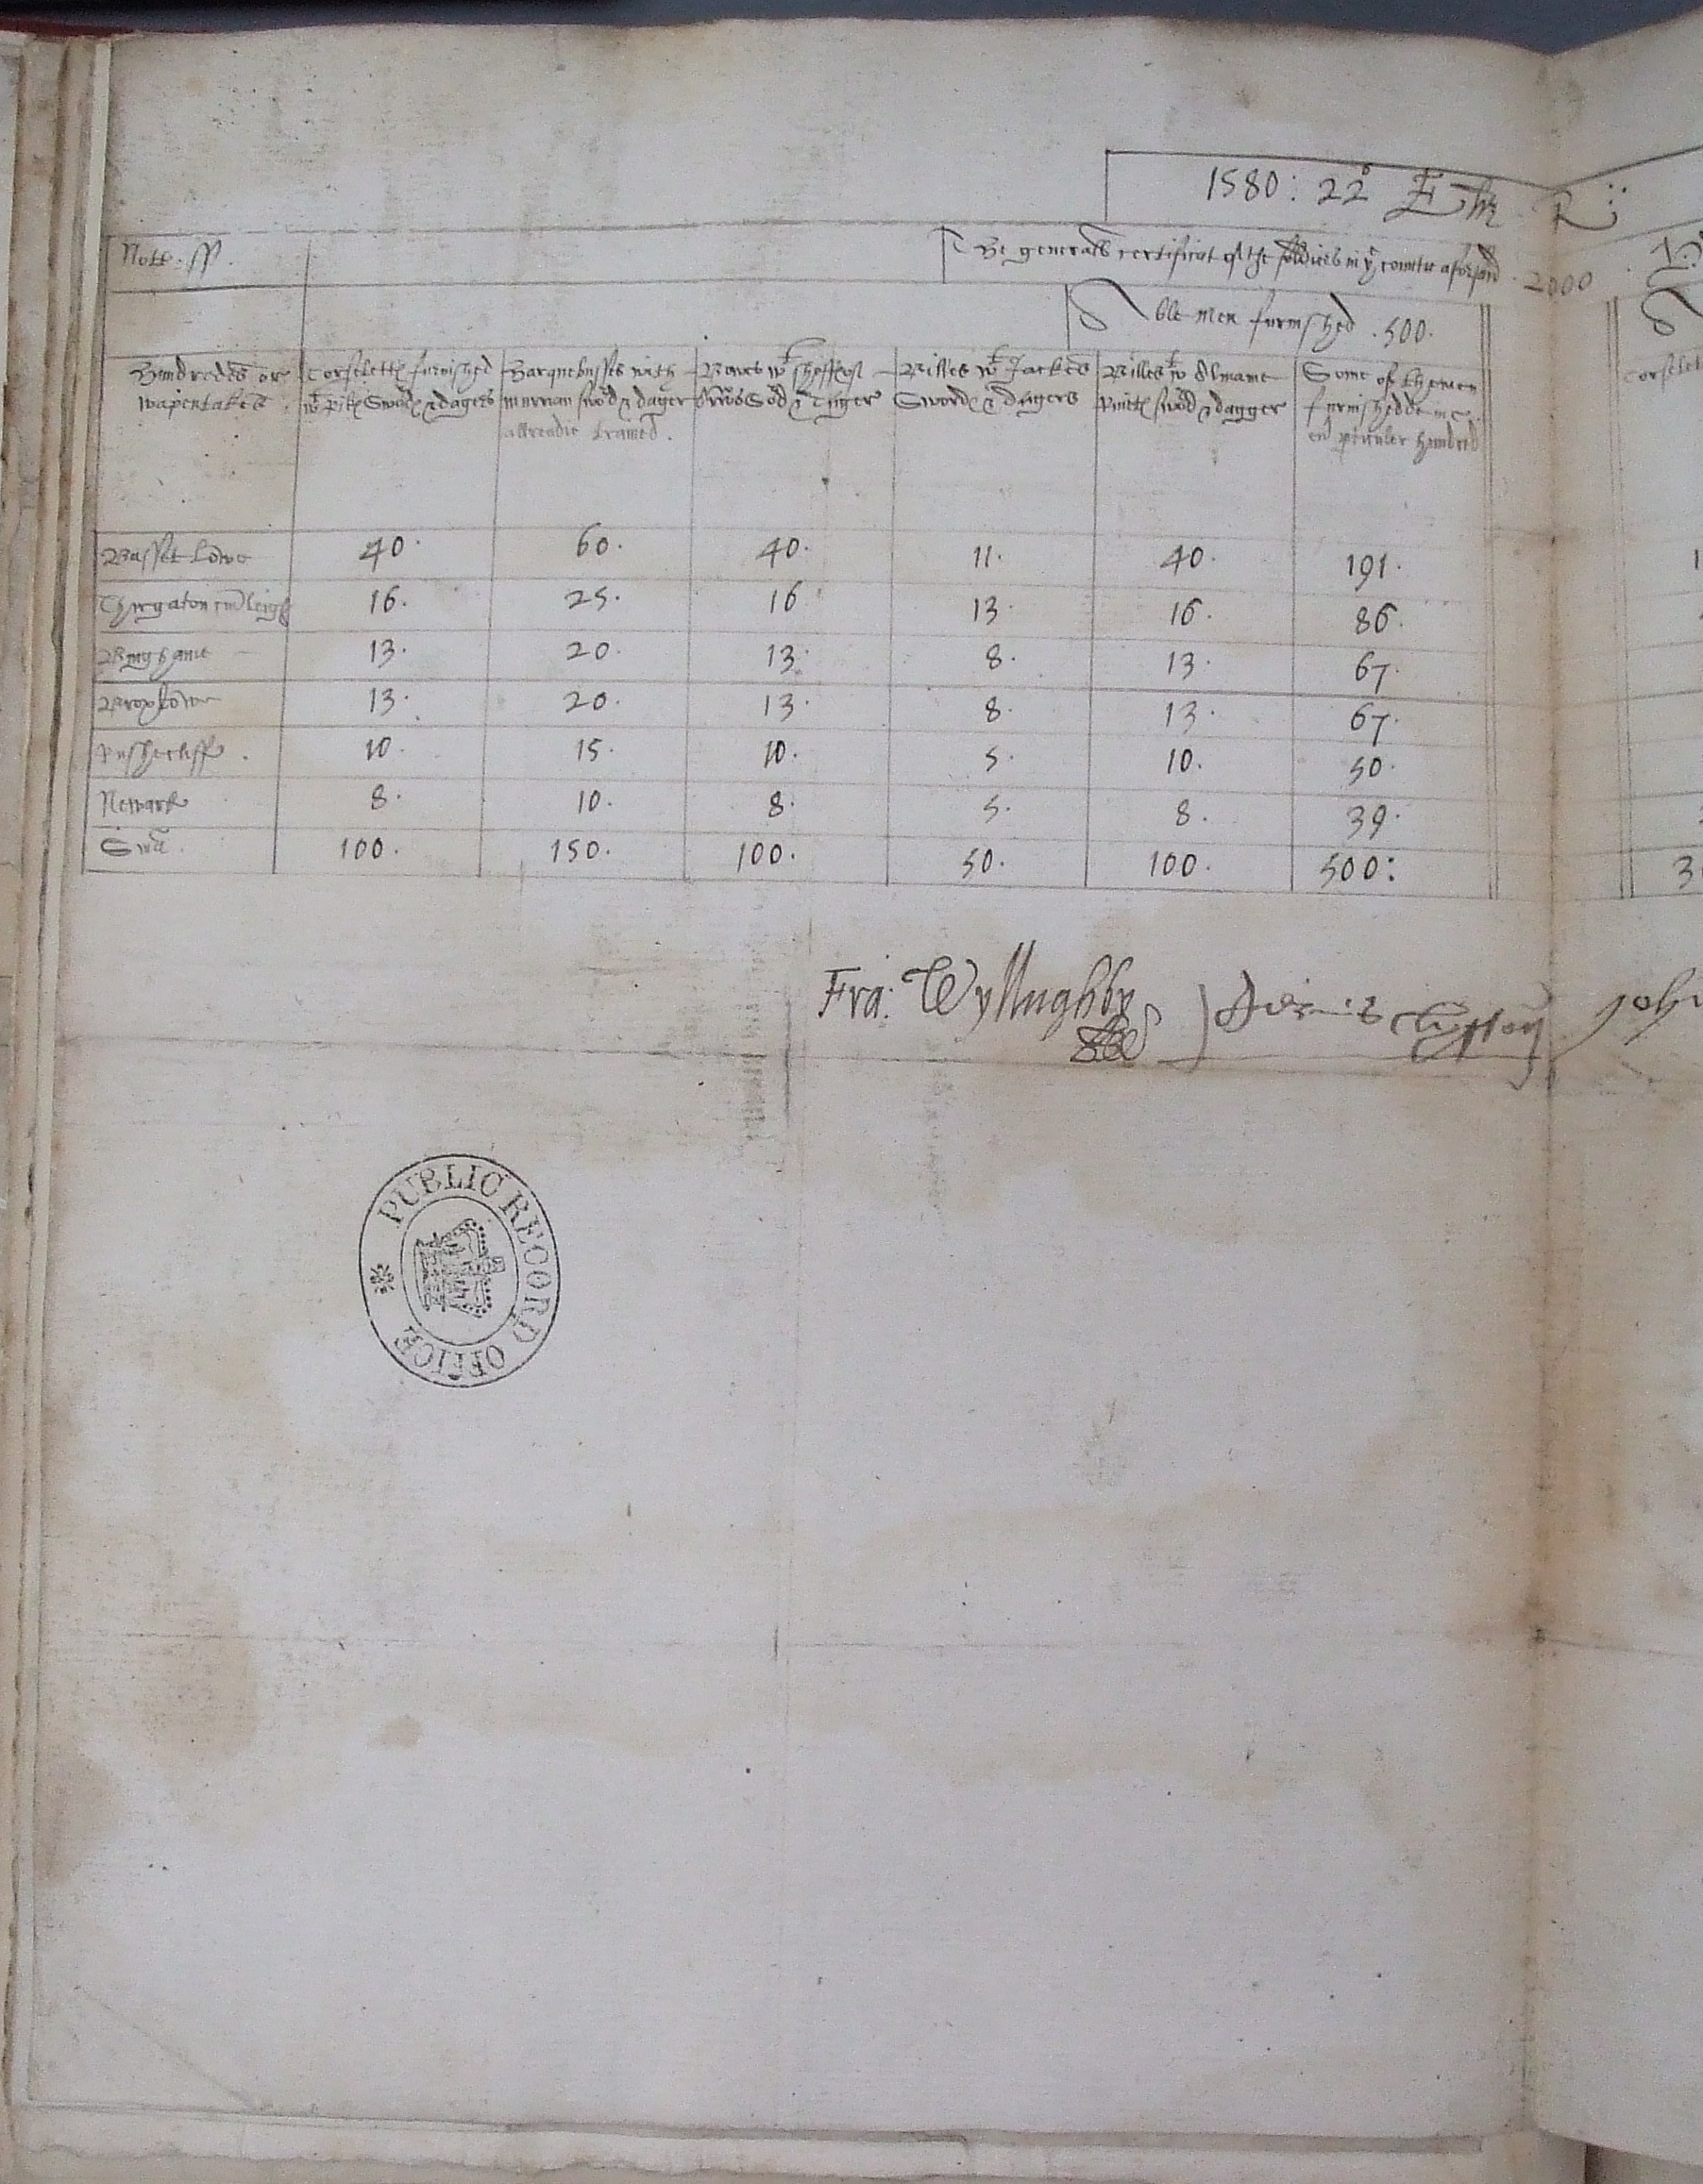 1580: 22° Eliz R
Nott. ss.
The generall certificat of the soldiers in ye countie aforsaid . 2000
Able men furnished . 500.
Hundredes or
wapentakes
Corseletts furnished
wt pikes Sword & dagers
Harquebusses with
murrian sword & dager
allreadie trained.
Bowes wt sheffe of
Arrows Sord & Dager
Billes wt Jackes
Sword & dagers
Billes wt Almane
rivitts sword & dagger
Some of the men
furnished in
perticuler hundred
corselet
Basset Lowe 40. 60. 40. 11. 40. 191.
Thurgaton cum Leigh 16. 25. 16 13. 16. 86.
Bynghame 13. 20. 13. 8. 13. 67.
Broxtow 13. 20. 13. 8. 13. 67.
Rusheclyff 10. 15. 10. 5. 10. 50.
Newark 8. 10. 8. 5. 8. 39.
Sma 100. 150. 100. 50. 100. 500:
Fra: Wyllughby
Clyfton
John
PUBLIC RECORD OFFICE